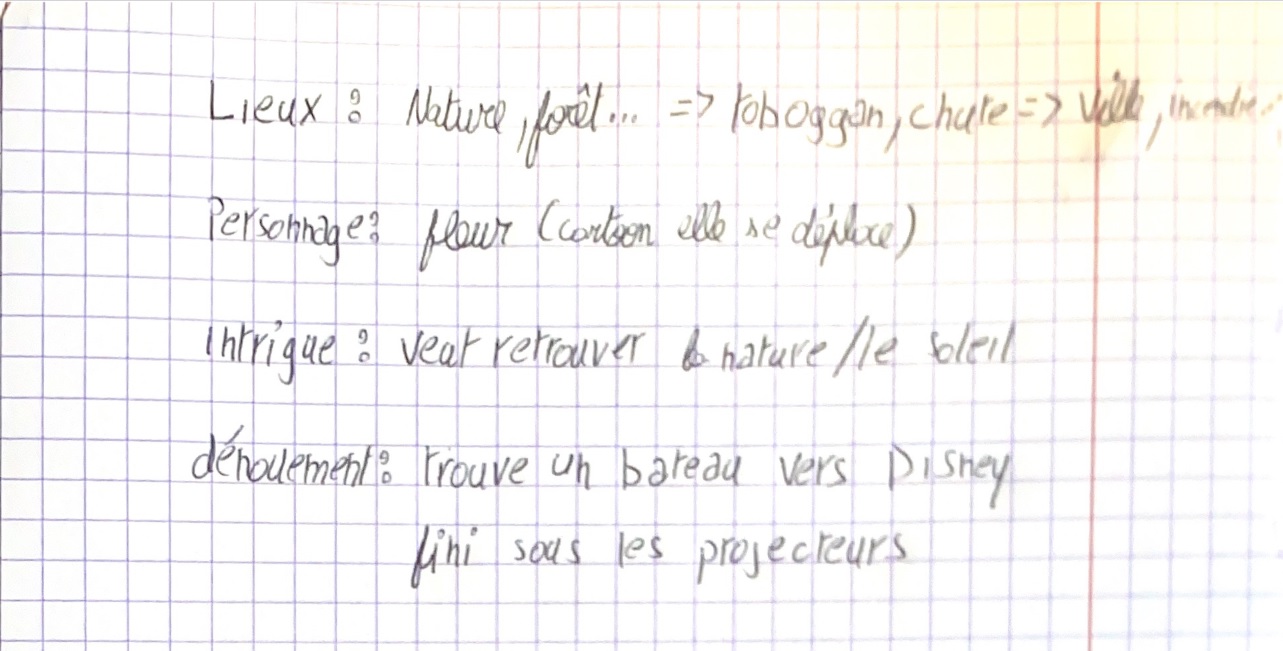 Lieux : Nature, forêt... => toboggan, chute => ville, incendie...
Personnage : fleur (cartoon elle se déplace)
Intrigue : veut retrouver la nature / le soleil
dénouement : trouve un bateau vers Disney
fini sous les projecteurs